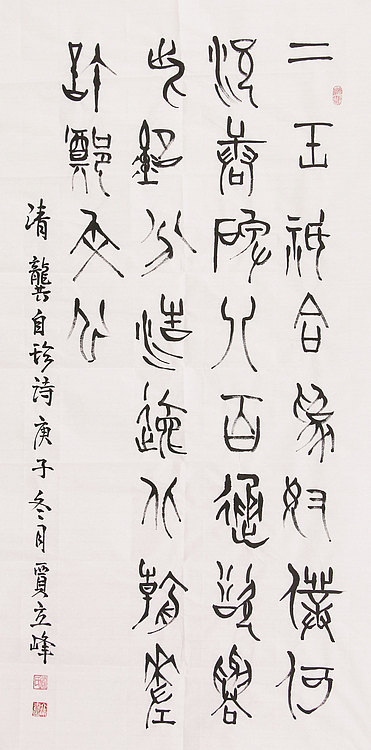 二王祇合為奴僕何
況唐碑八百通欲與
此銘分浩逸北朝差
許鄭文公
清龔自珍詩庚子冬月賈立峰